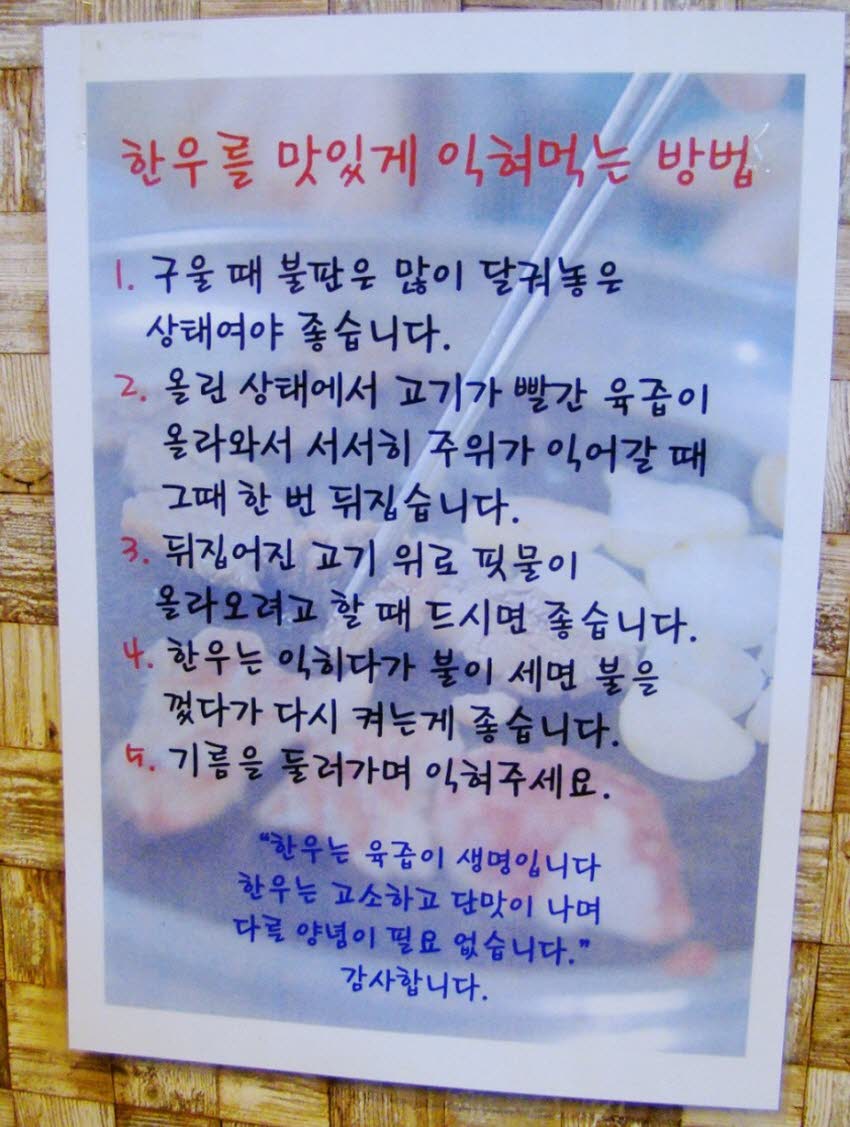 한우를 맛있게 익혀먹는 방법
1. 구울 때 불판은 많이 달궈놓은
상태여야 좋습니다.
2. 올린 상태에서 고기가 빨간 육즙이
올라와서 서서히 주위가 익어갈 때
그때 한 번 뒤집습니다.
3. 뒤집어진 고기 위로 핏물이
올라오려고 할 때 드시면 좋습니다.
4. 한우는 익히다가 불이 세면 불을
껐다가 다시 켜는게 좋습니다.
5. 기름을 둘러가며 익혀주세요.
"한우는 육즙이 생명입니다
한우는 고소하고 단맛이 나며
다를 양념이 필요 없습니다."
감사합니다.